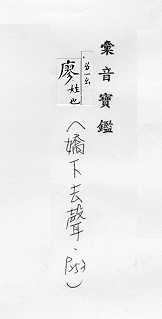 彙音寶鑑
廖姓也
(嬌下去聲·P353)